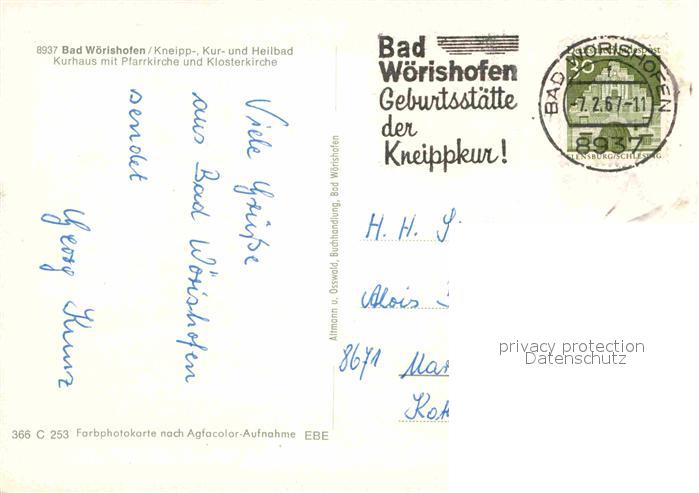 8937 Bad Wörishofen / Kneipp-, Kur- und Heilbad
Kurhaus mit Pfarrkirche und Klosterkirche
Viele Grüße
aus Bad Wörishofen
sendet
Georg Kunz
366 C 253 Farbphotokarte nach Agfacolor-Aufnahme EBE
Altmann u. Osswald, Buchhandlung, Bad Wörishofen
Bad
Wörishofen
Geburtsstätte
der
Kneippkur!
BAD WÖRISHOFEN
-7.2.67-11
8937
FLENSBURG/SCHLESWIG
H. H. S
Alois
8671 Mar
Kot
privacy protection
Datenschutz